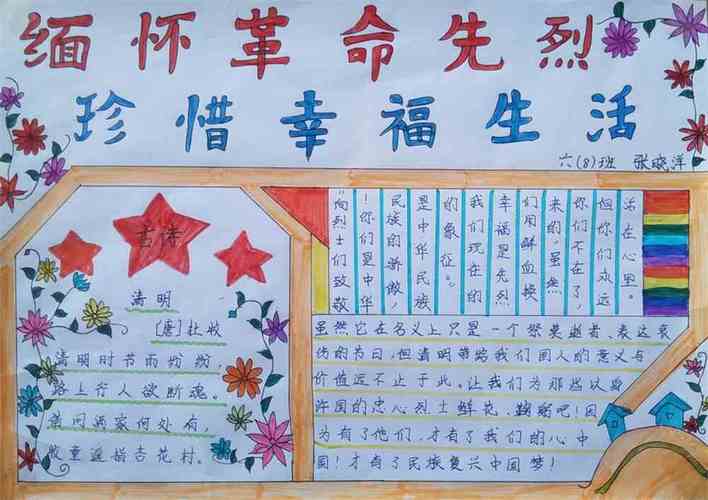 缅怀革命先烈
珍惜幸福生活
六(8)班 张晓洋
古诗
清明
[唐]杜牧
清明时节雨纷纷，
路上行人欲断魂。
借问酒家何处有，
牧童遥指杏花村。
"向烈士们致敬
！你们是中华
民族的骄傲，
是中华民族
的象征。"
我们现在的
幸福是先烈
们用鲜血换
来的，虽然
你们不在了，
但你们永远
活在心里。
虽然它在名义上只是一个祭奠逝者、表达哀
伤的节日，但清明带给我们国人的意义与
价值远不止于此。让我们为那些以身
许国的忠心烈士鲜花、鞠躬吧！因
为有了他们，才有了我们的心中
国！才有了民族复兴中国梦！